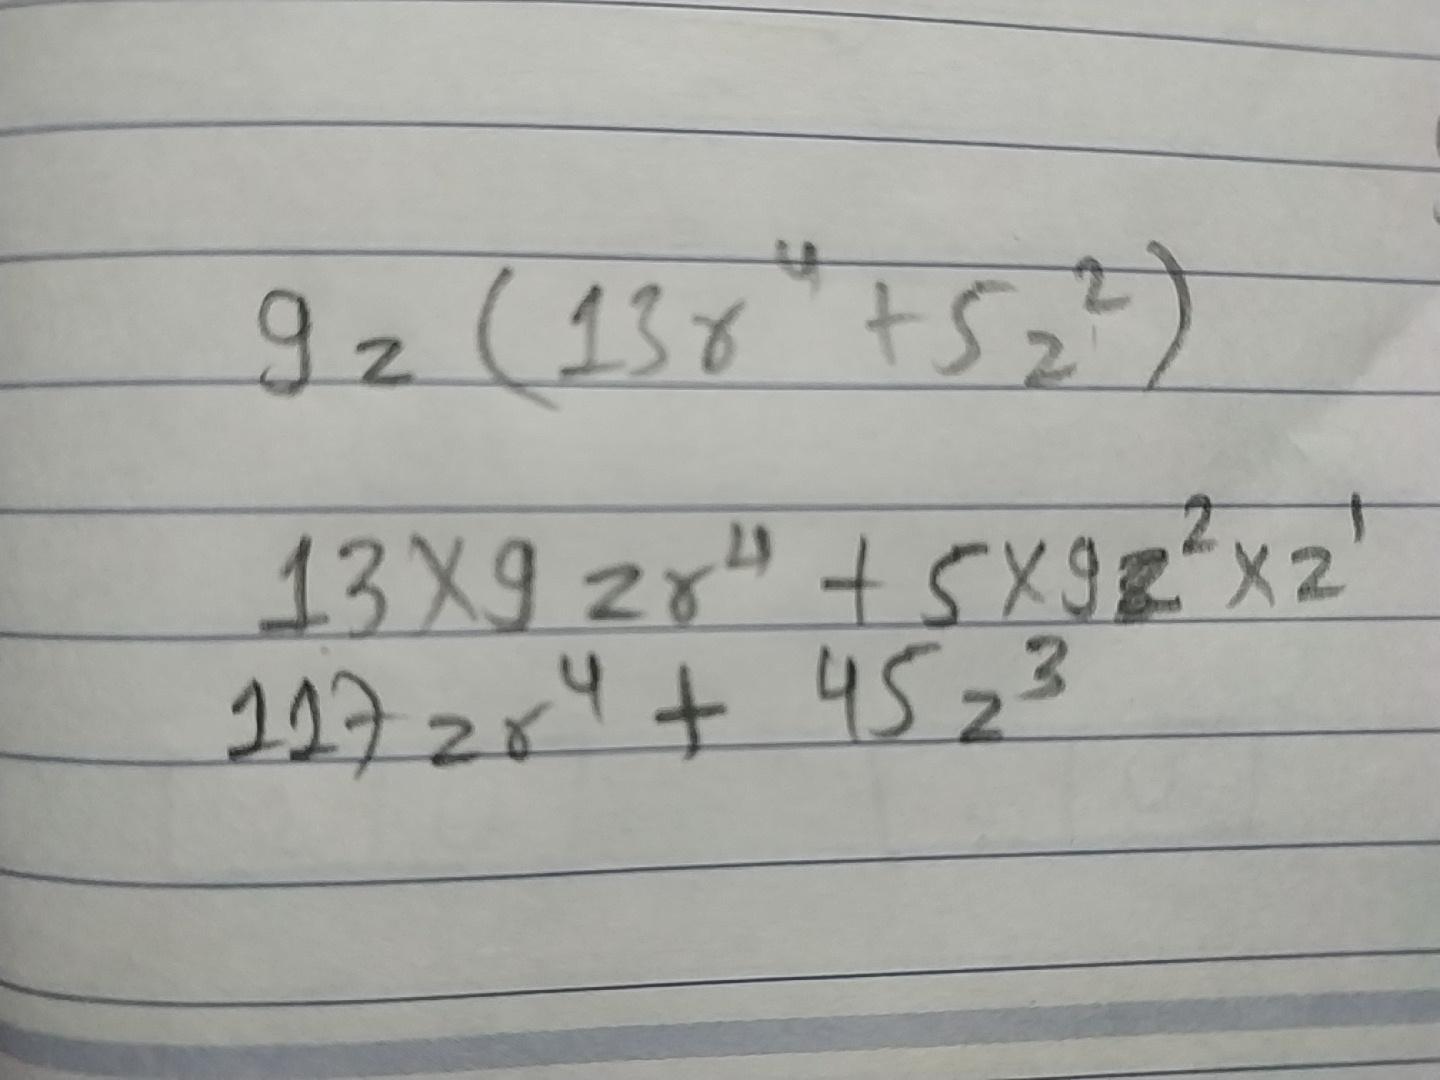 9z (13r⁴ + 5z²)
13×9 zr⁴ + 5×9z²×z¹
117zr⁴ + 45z³